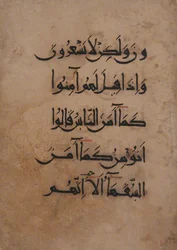 ون ولكن لا يشعرون
واذا قيل لهم آمنوا
كما آمن الناس قالوا
انؤمن كما آمن
السفهآء الا انهم